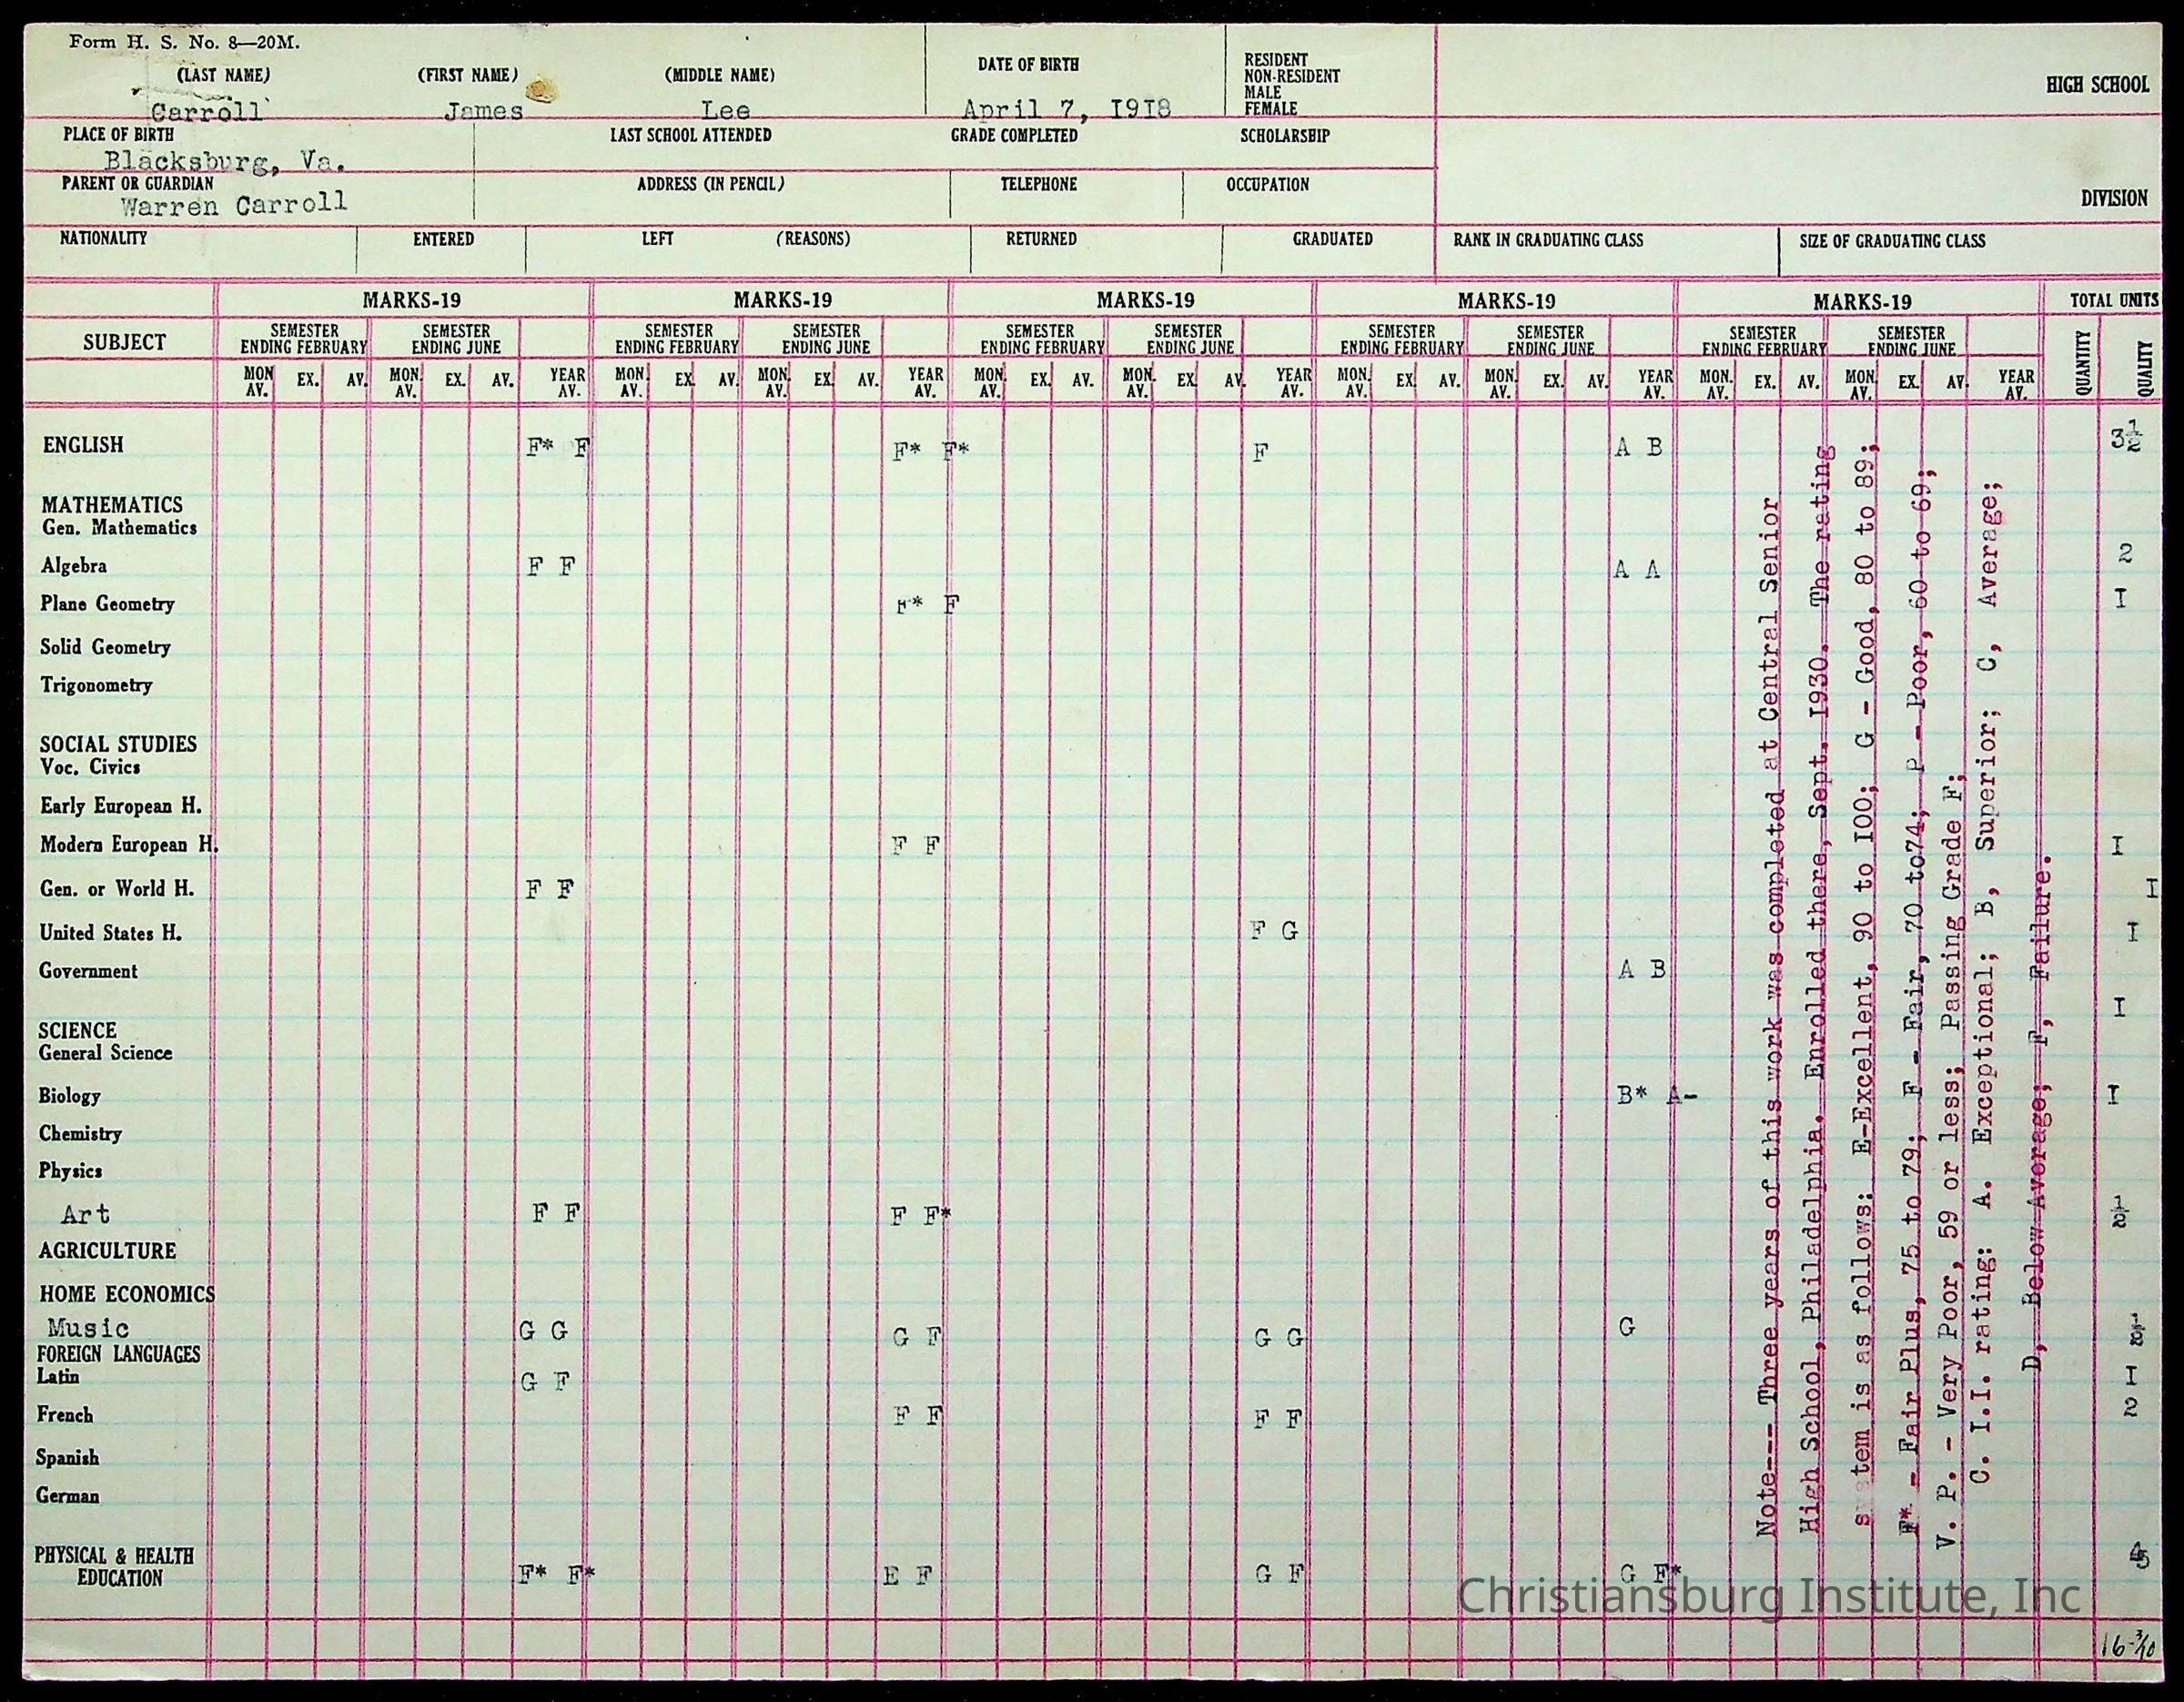 Form H. S. No. 8—20M.
(LAST NAME) (FIRST NAME) (MIDDLE NAME) DATE OF BIRTH RESIDENT
NON-RESIDENT
MALE
FEMALE
HIGH SCHOOL
Carroll James Lee April 7, I9I8
PLACE OF BIRTH LAST SCHOOL ATTENDED GRADE COMPLETED SCHOLARSHIP
Blacksburg, Va.
PARENT OR GUARDIAN ADDRESS (IN PENCIL) TELEPHONE OCCUPATION DIVISION
Warren Carroll
NATIONALITY ENTERED LEFT (REASONS) RETURNED GRADUATED RANK IN GRADUATING CLASS SIZE OF GRADUATING CLASS
MARKS-19 MARKS-19 MARKS-19 MARKS-19 MARKS-19 TOTAL UNITS
SUBJECT SEMESTER ENDING FEBRUARY SEMESTER ENDING JUNE SEMESTER ENDING FEBRUARY SEMESTER ENDING JUNE SEMESTER ENDING FEBRUARY SEMESTER ENDING JUNE SEMESTER ENDING FEBRUARY SEMESTER ENDING JUNE SEMESTER ENDING FEBRUARY SEMESTER ENDING JUNE QUANTITY QUALITY
MON. AV. EX. AV. MON. AV. EX. AV. YEAR AV. MON. AV. EX. AV. MON. AV. EX. AV. YEAR AV. MON. AV. EX. AV. MON. AV. EX. AV. YEAR AV. MON. AV. EX. AV. MON. AV. EX. AV. YEAR AV. MON. AV. EX. AV. MON. AV. EX. AV. YEAR AV.
ENGLISH F* F F* F* F A B 3½
MATHEMATICS
Gen. Mathematics
Algebra F F A A 2
Plane Geometry F* F I
Solid Geometry
Trigonometry
SOCIAL STUDIES
Voc. Civics
Early European H.
Modern European H. F F I
Gen. or World H. F F I
United States H. F G I
Government A B
I
SCIENCE
General Science
Biology B* A- I
Chemistry
Physics
Art F F F F* ½
AGRICULTURE
HOME ECONOMICS
Music G G G F G G G
FOREIGN LANGUAGES
Latin G F I
French F F F F 2
Spanish
German
PHYSICAL & HEALTH
EDUCATION F* F* E F G F G F*
16-3/10
Note--- Three years of this work was completed at Central Senior
High School, Philadelphia. Enrolled there, Sept. I930. The rating
system is as follows: E-Excellent, 90 to I00; G - Good, 80 to 89;
F* - Fair Plus, 75 to 79; F - Fair, 70 to74; P - Poor, 60 to 69;
V. P. - Very Poor, 59 or less; Passing Grade F;
C. I.I. rating: A. Exceptional; B, Superior; C, Average;
D, Below Average; F, Failure.
Christiansburg Institute, Inc